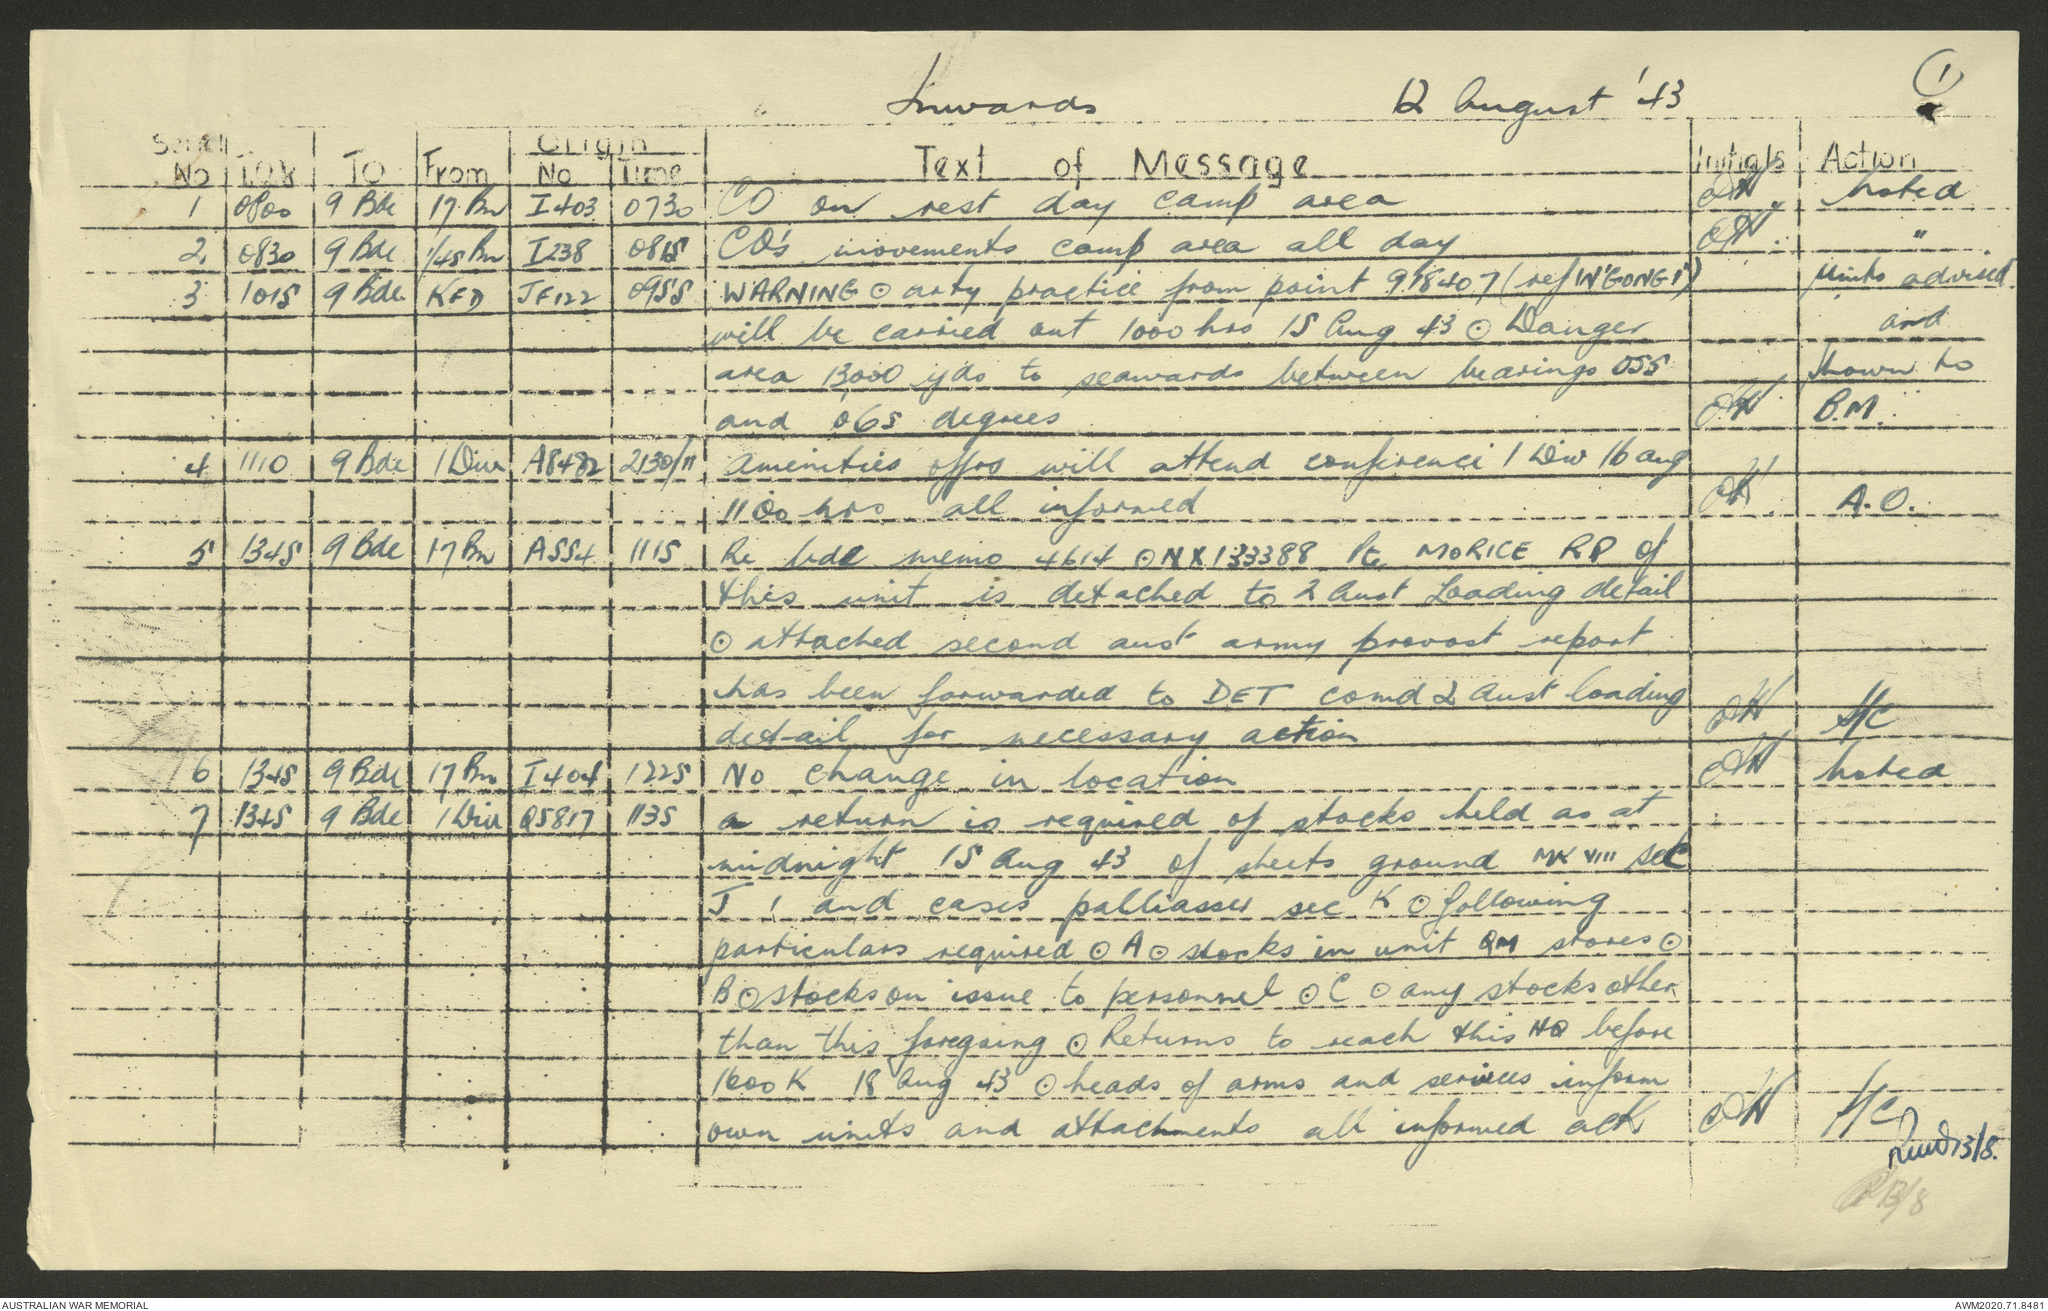 Inwards 12 August '43 1
Serial Origin
No TOR TO From No Time Text of Message Initials Action
1 0800 9 Bde 17 Bn I403 0730 CO on rest day camp area OH noted
2 0830 9 Bde 1/45 Bn I238 0815 CO's movements camp area all day OH "
3 1015 9 Bde KFD JF122 0955 WARNING ⊙ arty practice from point 978407 (ref W'GONG 1") Units advised
will be carried out 1000 hrs 15 Aug 43 ⊙ Danger and
area 13,000 yds to seawards between bearings 055 shown to
and 065 degrees OH B.M.
4 1110 9 Bde 1 Div A8482 2130/11 Amenities offrs will attend conference 1 Div 16 aug
1100 hrs all informed OH A.O.
5 1345 9 Bde 17 Bn A554 1115 Re bde memo 4614 ⊙ NX133388 Pte MORICE RP of
this unit is detached to 2 Aust Loading detail
⊙ attached second aust army provost report
has been forwarded to DET comd 2 Aust loading
detail for necessary action OH S/C
6 1345 9 Bde 17 Bn I404 1225 No change in location OH noted
7 1345 9 Bde 1 Div Q5817 1135 a return is required of stocks held as at
midnight 15 Aug 43 of sheets ground MK VIII sec
J 1 and cases palliasses sec K ⊙ following
particulars required ⊙ A ⊙ stocks in unit QM stores ⊙
B ⊙ stocks on issue to personnel ⊙ C ⊙ any stocks other
than this foregoing ⊙ Returns to reach this HQ before
1600K 18 Aug 43 ⊙ heads of arms and services inform
own units and attachments all informed ack OH S/C
13/8.
13/8
AUSTRALIAN WAR MEMORIAL AWM2020.71.8481